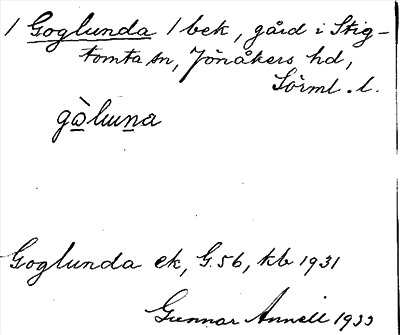 1 Goglunda /bek, gård i Stig-
tomta sn, Jönåkers hd,
Sörml. l.
gə̀luṉa
Goglunda ek, G.56, kb 1931
Gunnar Annell 1933